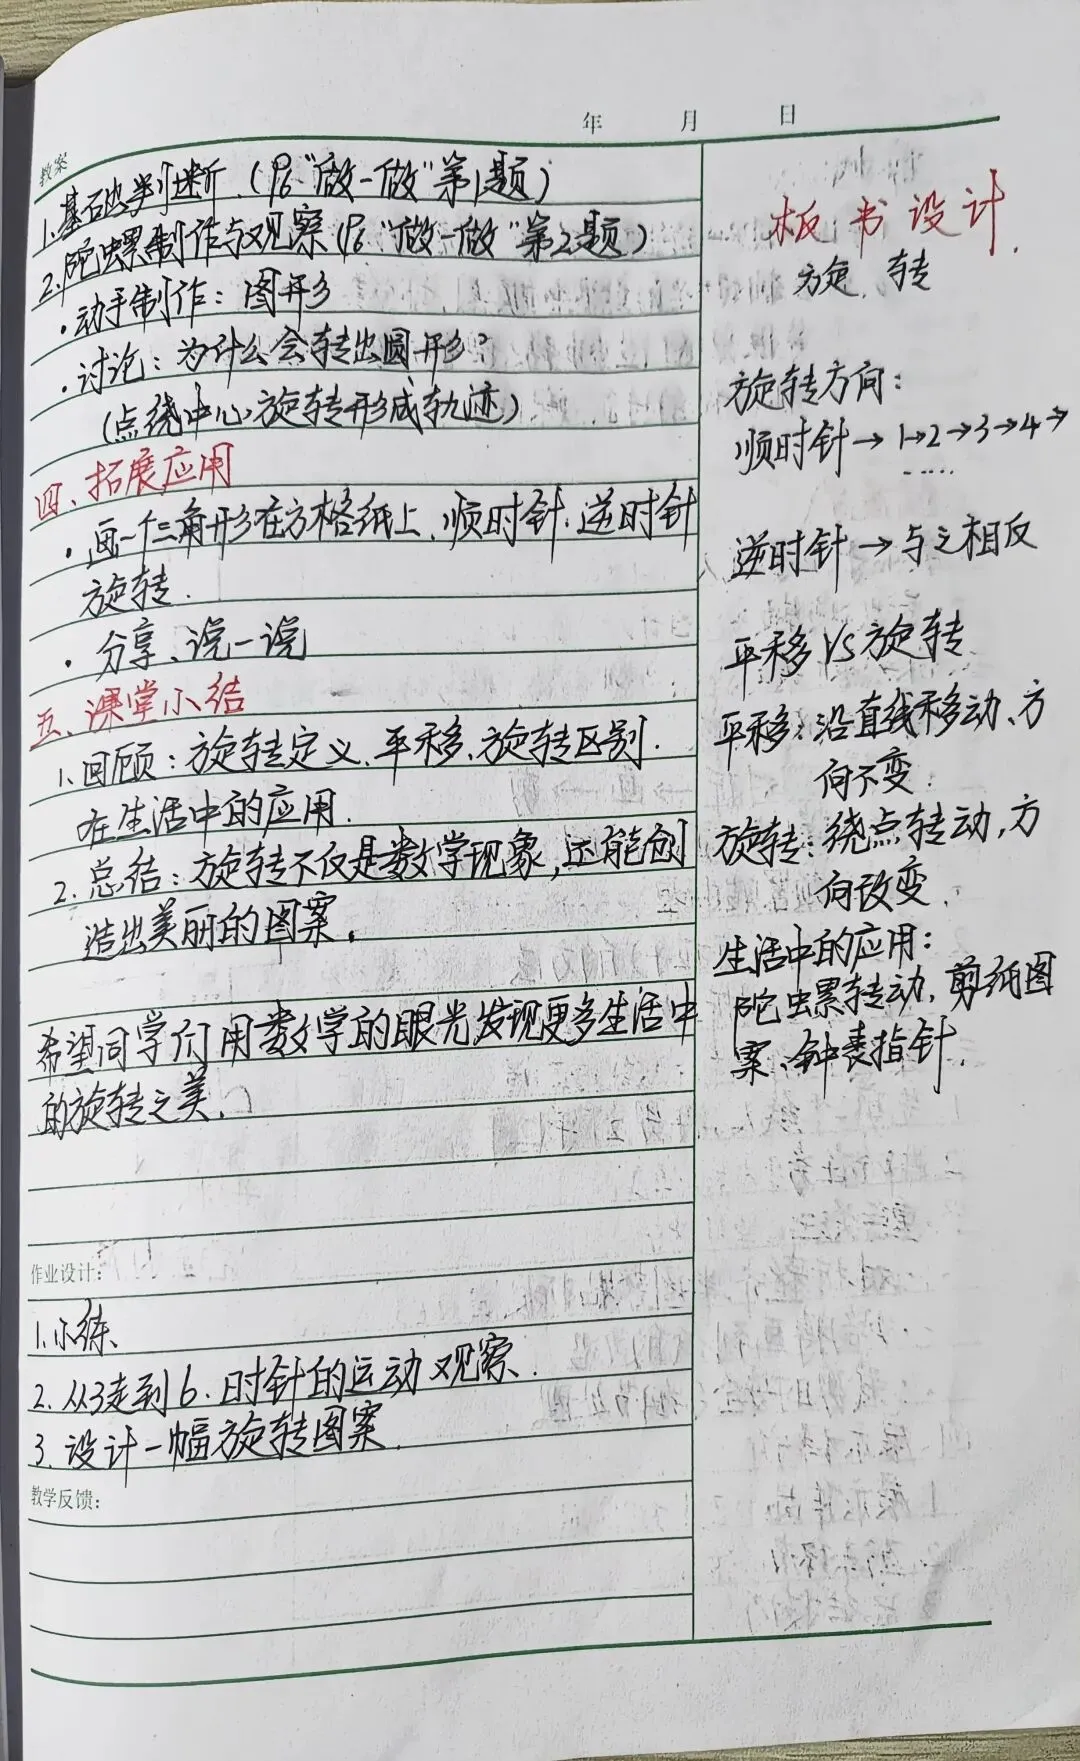 年 月 日
教案
1.基础判断.(P6"做一做"第1题)
2.陀螺制作与观察(P6"做一做"第2题)
·动手制作：图形
·讨论：为什么会转出圆形？
(点绕中心旋转形成轨迹)
四、拓展应用
·画一个三角形在方格纸上、顺时针、逆时针
旋转.
·分享、说一说
五、课堂小结
1.回顾：旋转定义、平移、旋转区别.
在生活中的应用.
2.总结：旋转不仅是数学现象,还能创
造出美丽的图案。
希望同学们用数学的眼光发现更多生活中
的旋转之美.
作业设计：
1.小练、
2.从3走到6.时针的运动观察.
3.设计一幅旋转图案.
教学反馈：
板书设计.
旋转
旋转方向：
顺时针→1→2→3→4→
.....
逆时针→与之相反
平移VS旋转
平移：沿直线移动、方
向不变.
旋转：绕点转动,方
向改变.
生活中的应用：
陀螺转动,剪纸图
案、钟表指针.